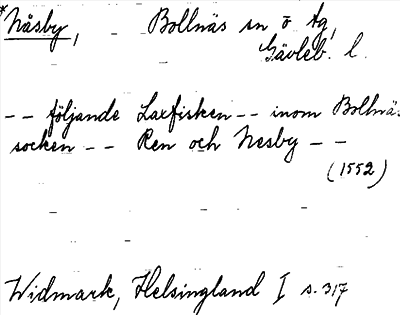 *Nåsby, Bollnäs sn o tg,
Gävleb. l.
-- följande Laxfisken -- inom Bollnäs
socken -- Ren och Nesby --
(1552)
Widmark, Helsingland I s. 317